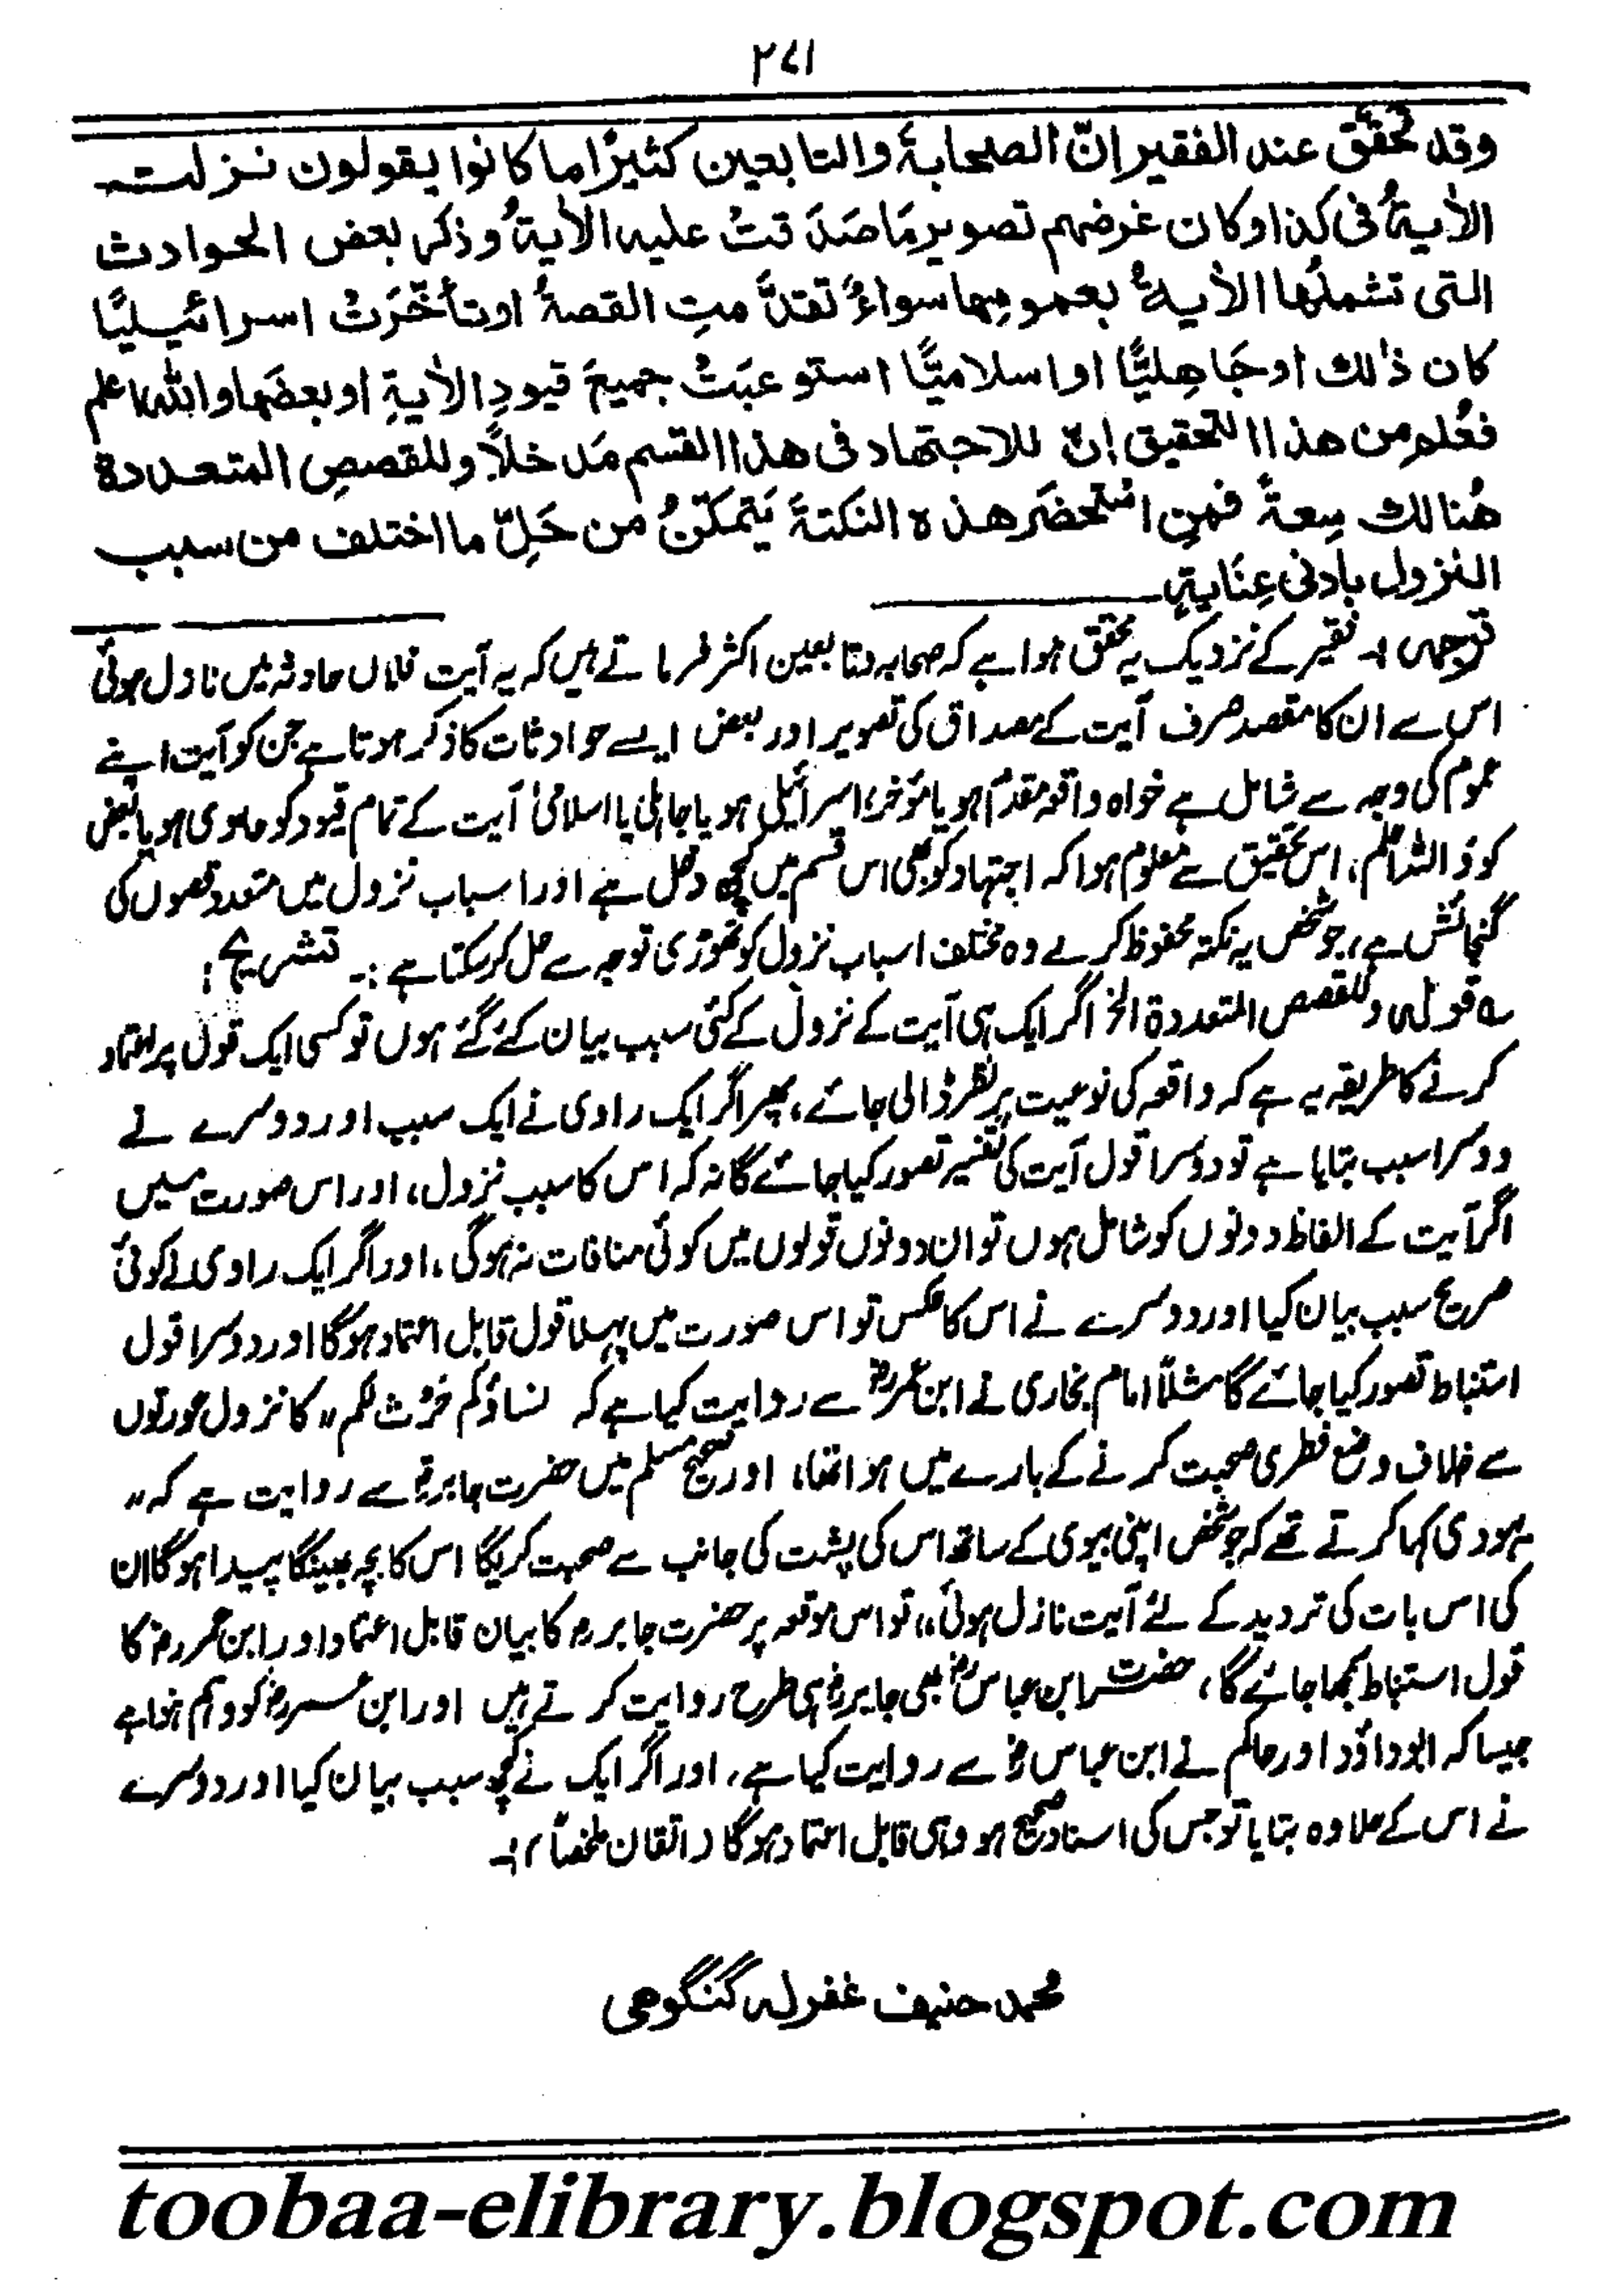 ۲۷۱
وقد تحقق عند الفقير انّ الصحابةَ والتابعين كثيرًا ما كانوا يقولون نزلت
الاٰيةُ فى كذا وكان غرضهم تصوير مَا صَدَقتْ عليه الاٰيةُ وذكر بعض الحوادث
التى تشملُها الاٰيةُ بعمومِها سواءً تقدَّمتِ القصةُ اوتأخَّرَتْ اسرائيليًّا
كان ذٰلك اوجَاهِليًّا اواسلاميًّا استوعبَتْ جميعَ قيودِ الاٰيةِ اوبعضَها والله اعلم
فعُلِم من هذا التحقيق انّ للاجتهاد فى هذا القسم مَدخلاً وللقصصِ المتعددة
هُنالك سِعةً فمن استحضَرهذه النكتةَ يَتمكّنُ من حَلِّ ما اختلف من سبب
النزول بأدنى عِنَايةٍ
ترجمہ:۔ فقیر کے نزدیک یہ محقق ہوا ہے کہ صحابہ وتابعین اکثر فرماتے ہیں کہ یہ آیت فلاں حادثہ میں نازل ہوئی
اس سے ان کا مقصد صرف آیت کے مصداق کی تصویر اور بعض ایسے حوادثات کا ذکر ہوتا ہے جن کو آیت اپنے
عموم کی وجہ سے شامل ہے خواہ واقعہ مقدم ہو یا مؤخر، اسرائیلی ہو یا جاہلی یا اسلامی آیت کے تمام قیود کو حاوی ہو یا بعض
کو، واللہ اعلم، اس تحقیق سے معلوم ہوا کہ اجتہاد کو بھی اس قسم میں کچھ دخل ہے اور اسباب نزول میں متعدد قصوں کی
گنجائش ہے، جو شخص یہ نکتہ محفوظ کر لے وہ مختلف اسباب نزول کو تھوڑی توجہ سے حل کر سکتا ہے :۔ تشریح :
قولہ وللقصص المتعددۃ الخ اگر ایک ہی آیت کے نزول کے کئی سبب بیان کئے گئے ہوں تو کسی ایک قول پر اعتماد
کرنے کا طریقہ یہ ہے کہ واقعہ کی نوعیت پر نظر ڈالی جائے، پھر اگر ایک راوی نے ایک سبب اور دوسرے نے
دوسرا سبب بتایا ہے تو دوسرا قول آیت کی تفسیر تصور کیا جائے گا نہ کہ اس کا سبب نزول، اور اس صورت میں
اگر آیت کے الفاظ دونوں کو شامل ہوں تو ان دونوں قولوں میں کوئی منافات نہ ہوگی، اور اگر ایک راوی نے کوئی
صریح سبب بیان کیا اور دوسرے نے اس کا عکس تو اس صورت میں پہلا قول قابل اعتماد ہوگا اور دوسرا قول
استنباط تصور کیا جائے گا مثلاً امام بخاری نے ابن عمرؓ سے روایت کیا ہے کہ نساؤکم حرث لکم ،، کا نزول عورتوں
سے خلاف وضع فطری صحبت کرنے کے بارے میں ہوا تھا، اور صحیح مسلم میں حضرت جابرؓ سے روایت ہے کہ ،،
یہودی کہا کرتے تھے کہ جو شخص اپنی بیوی کے ساتھ اس کی پشت کی جانب سے صحبت کریگا اس کا بچہ بھینگا پیدا ہوگا ان
کی اس بات کی تردید کے لئے آیت نازل ہوئی،، تو اس موقعہ پر حضرت جابرؓ کا بیان قابل اعتماد اور ابن عمرؓ کا
قول استنباط سمجھا جائے گا، حضرت ابن عباسؓ بھی جابرؓ ہی طرح روایت کرتے ہیں اور ابن عمرؓ کو وہم ہوا ہے
جیسا کہ ابوداؤد اور حاکم نے ابن عباسؓ سے روایت کیا ہے، اور اگر ایک نے کچھ سبب بیان کیا اور دوسرے
نے اس کے علاوہ بتایا تو جس کی اسناد صحیح ہو وہی قابل اعتماد ہوگا (اتقان ملخصاً)
محمد حنیف غفرلہ گنگوہی
toobaa-elibrary.blogspot.com